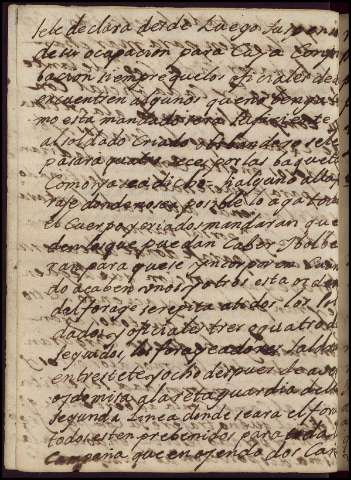 se le declara desde Luego su
de su ocapacion para Cuya Compro
bacion siempre que los oficiales de
encuentren algunos que no tenga
mo esta mandado sera
al soldado Criado se le
pasara quatro veces por las baquetas
Como ya sea dicho halguno
raje donde no sea posible lo aga todo
el Cuerpo y criados mandaran que
den los que puedan Caber
ran para que se yncorporen Cuan
do acaben unos y otros esta orden
del foraje se repita a todos los so
dados y oficiales tres o quatro d
seguidos, los forageadores saldr
entre siete y ocho despues de aver
oydo misa a la retaguardia de la
segunda Linea donde seara el for
todos esten prebenidos para
Campaña que en oyendo dos Ca